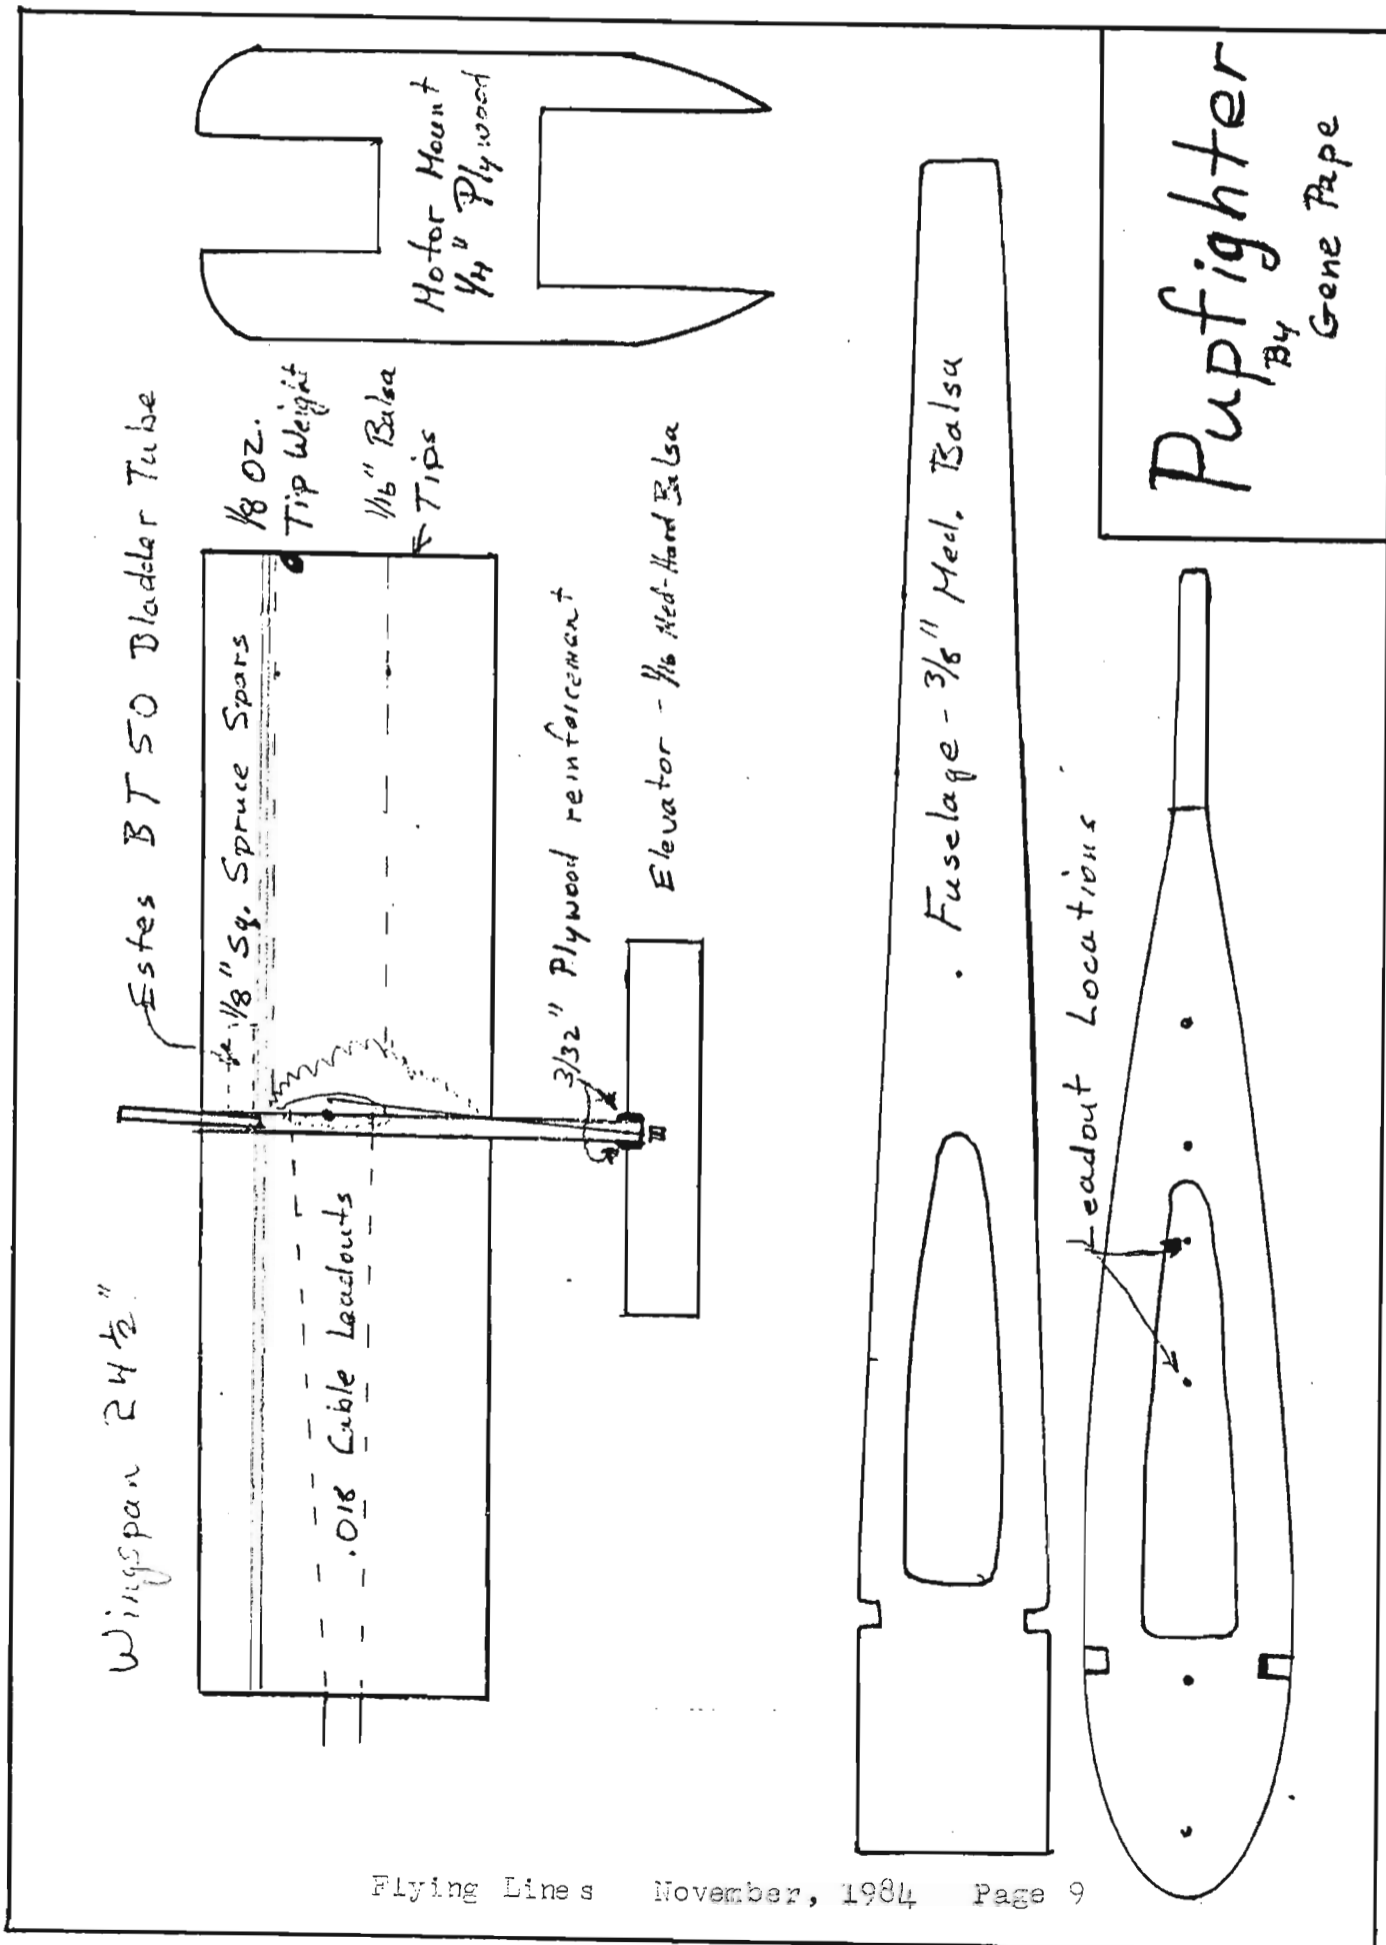 Wingspan 24 1/2"
Estes BT 50 Bladder Tube
1/8" Sq. Spruce Spars
1/8 oz.
Tip Weight
1/16" Balsa
Tips
.018 Cable Leadouts
3/32" Plywood reinforcement
Elevator - 1/16 Med-Hard Balsa
Motor Mount
1/4" Plywood
Fuselage - 3/8" Med. Balsa
Leadout Locations
Pupfighter
By
Gene Pape
Flying Lines November, 1984 Page 9